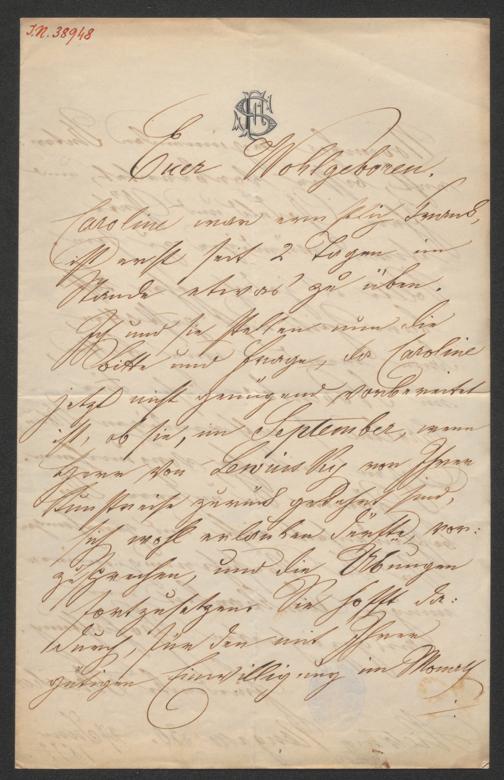 I.N. 38948
Euer Wohlgeboren.
Caroline war ernstlich krank,
ist erst seit 2 Tagen im
Stande etwas zu üben.
Ich und sie stellen nun die
Bitte und Frage, da Caroline
jetzt nicht genügend vorbereitet
ist, ob sie, im September, wenn
Herr von Lewinsky von Ihrer
Kunstreise zurück gekehrt sind,
sich wohl erlauben dürfte, vor:
zusprechen, und die Übungen
fortzusetzen. Sie hofft da:
durch, für den mit Ihrer
gütigen Einwilligung im